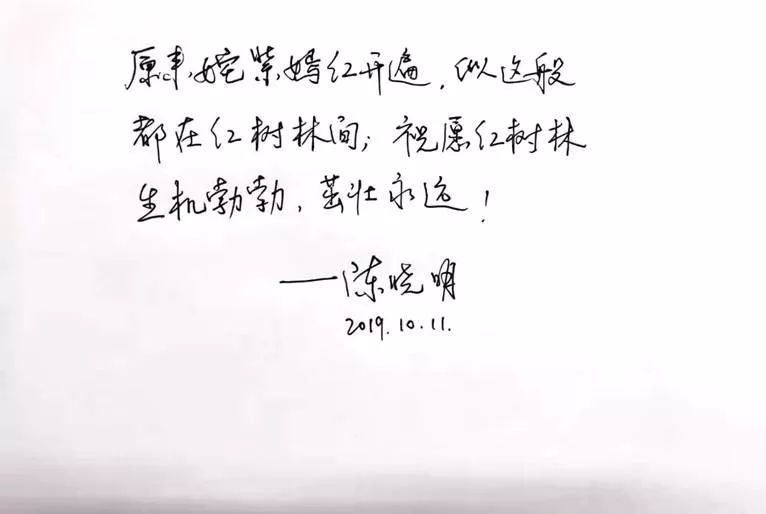 原来姹紫嫣红开遍，似这般
都在红树林间；祝愿红树林
生机勃勃，茁壮永远！
——陈晓明
2019.10.11.